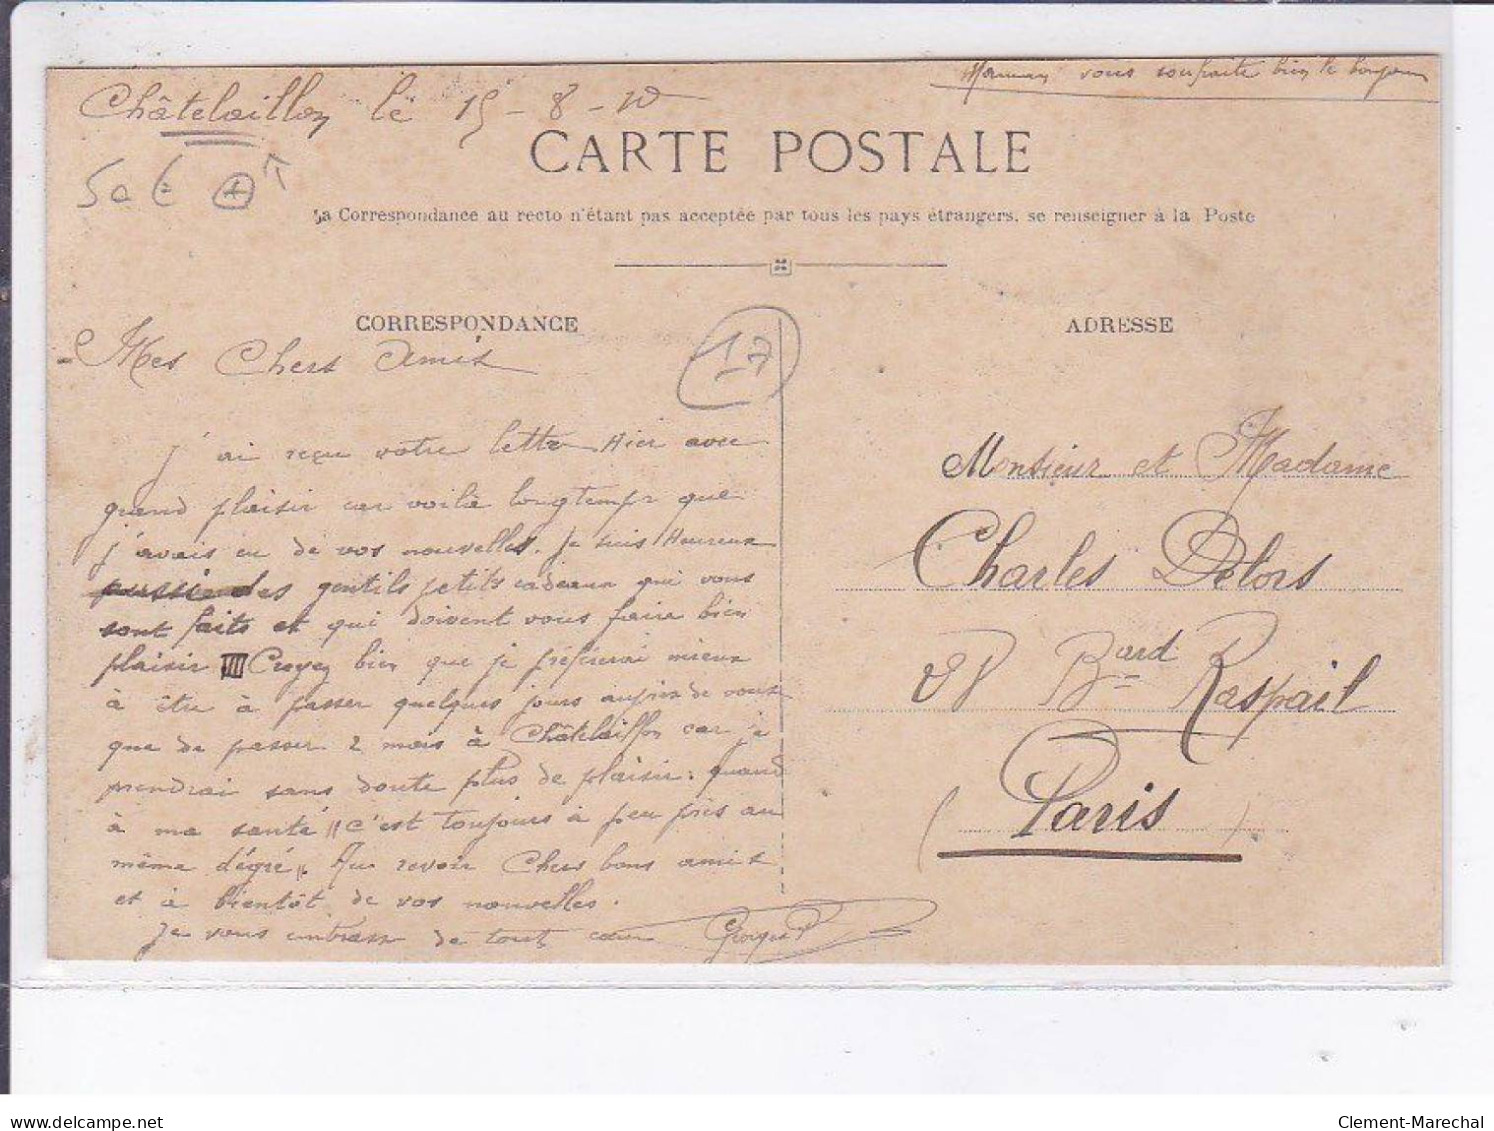 Maman vous souhaite bien le bonjour
Châtelaillon le 15 - 8 - 10
CARTE POSTALE
50 €
La Correspondance au recto n'étant pas acceptée par tous les pays étrangers, se renseigner à la Poste
CORRESPONDANCE
ADRESSE
17
Mes Chers Amis
J'ai reçu votre lettre Hier avec
grand plaisir car voilà longtemps que
j'avais eu de vos nouvelles. Je suis Heureux
des gentils petits cadeaux qui vous
sont faits et qui doivent vous faire bien
plaisir !!! Croyez bien que je préférerai mieux
à être à passer quelques jours auprès de vous
que de passer 2 mois à Châtelaillon car je
prendrai sans doute plus de plaisir. quand
à ma santé "c'est toujours à peu près au
même dégré". Au revoir Chers bons amis
et à bientôt de vos nouvelles.
Je vous embrasse de tout cœur Georges
Monsieur et Madame
Charles Delors
Bard Raspail
(Paris)
www.delcampe.net
Clement-Marechal